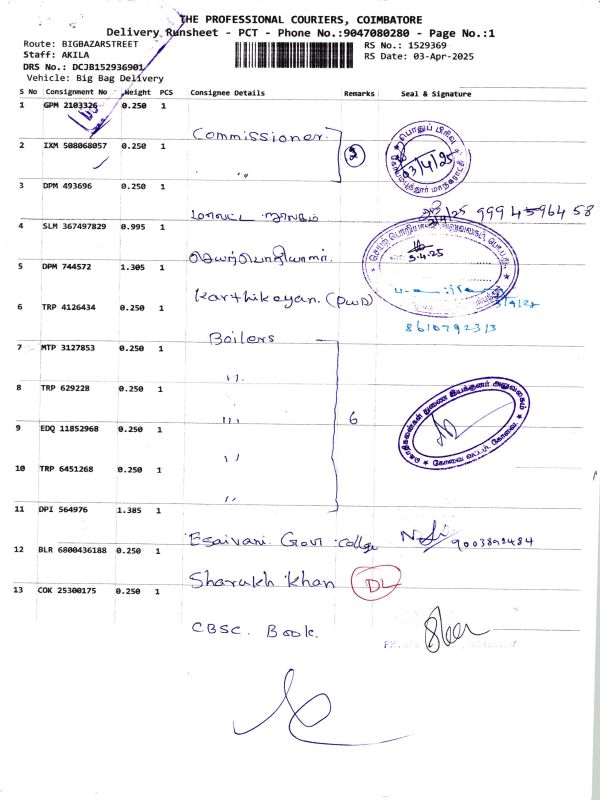 THE PROFESSIONAL COURIERS, COIMBATORE
Delivery Runsheet - PCT - Phone No.:9047080280 - Page No.:1
Route: BIGBAZARSTREET
Staff: AKILA
DRS No.: DCJB152936901
Vehicle: Big Bag Delivery
RS No.: 1529369
RS Date: 03-Apr-2025
S No Consignment No Weight PCS Consignee Details Remarks Seal & Signature
1 GPM 2103326 0.250 1
Commissioner
2 IXM 508068057 0.250 1
〃
2
03/4/25
3 DPM 493696 0.250 1
4 SLM 367497829 0.995 1
99945 96458
5 DPM 744572 1.305 1
3.4.25
Karthikeyan. (PWD)
6 TRP 4126434 0.250 1
8610792313
Boilers
7 MTP 3127853 0.250 1
〃
8 TRP 629228 0.250 1
〃
6
9 EDQ 11852968 0.250 1
〃
10 TRP 6451268 0.250 1
〃
11 DPI 564976 1.385 1
Esaivani Govt college
9003892484
12 BLR 6800436188 0.250 1
Sharukh khan
DL
13 COK 25300175 0.250 1
CBSC. Book.